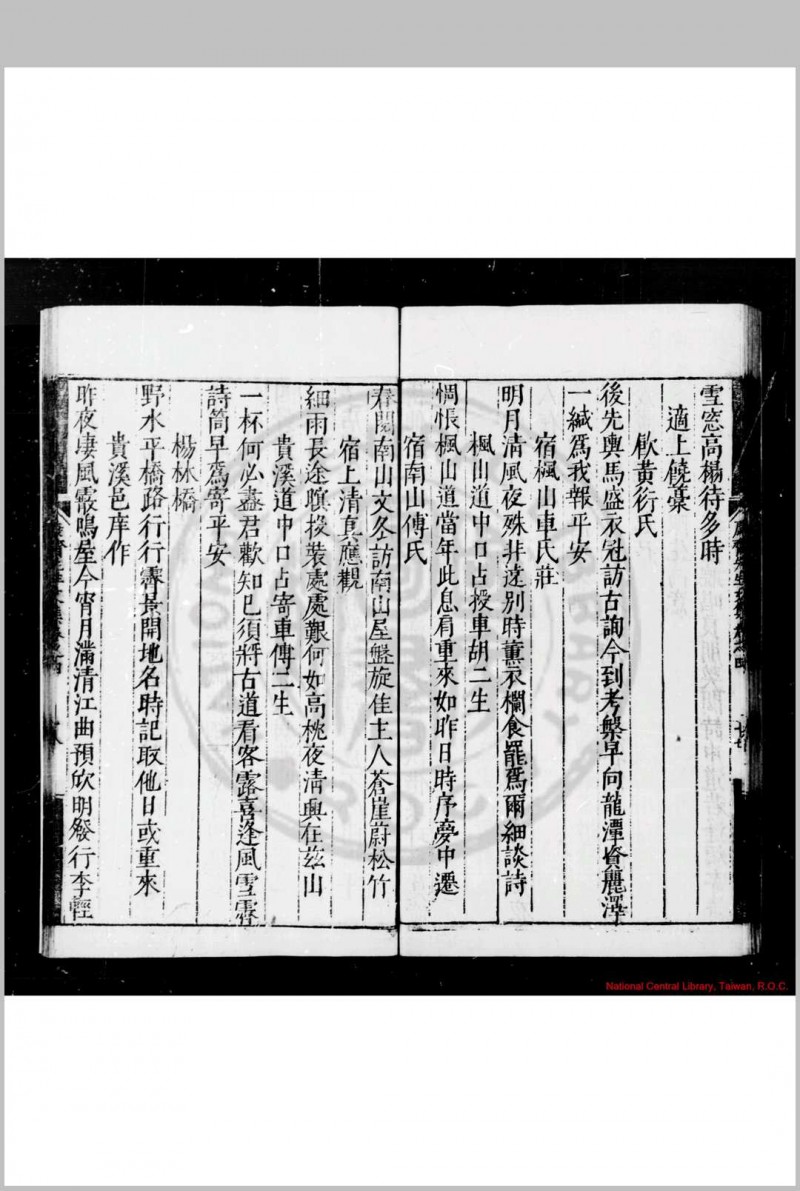 雪窓高榻待多時
適上饒藁
欶黃衍氏
後先輿馬盛衣冠訪古詢今到考槃早向龍潭資麗澤
一緘爲我報平安
宿楓山車氏莊
明月清風夜殊非遠别時薰衣欄食罷爲爾細談詩
楓山道中口占授車胡二生
惆悵楓山道當年此息肩重來如昨日時序夢中遷
宿南山傅氏
春閱南山文冬訪南山屋盤旋佳主人蒼崖蔚松竹
宿上清真應觀
細雨長途暝投裝處處艱何如高桃夜清興在兹山
貴溪道中口占寄車傅二生
一杯何必盡君歡知巳須將古道看客露喜逢風雪霽
詩筒早爲寄平安
楊林橋
野水平橋路行行霽景開地名時記取他日或重來
貴溪邑庠作
昨夜凄風霰鳴屋今宵月滿清江曲預欣明發行李輕
National Central Library, Taiwan, R.O.C.